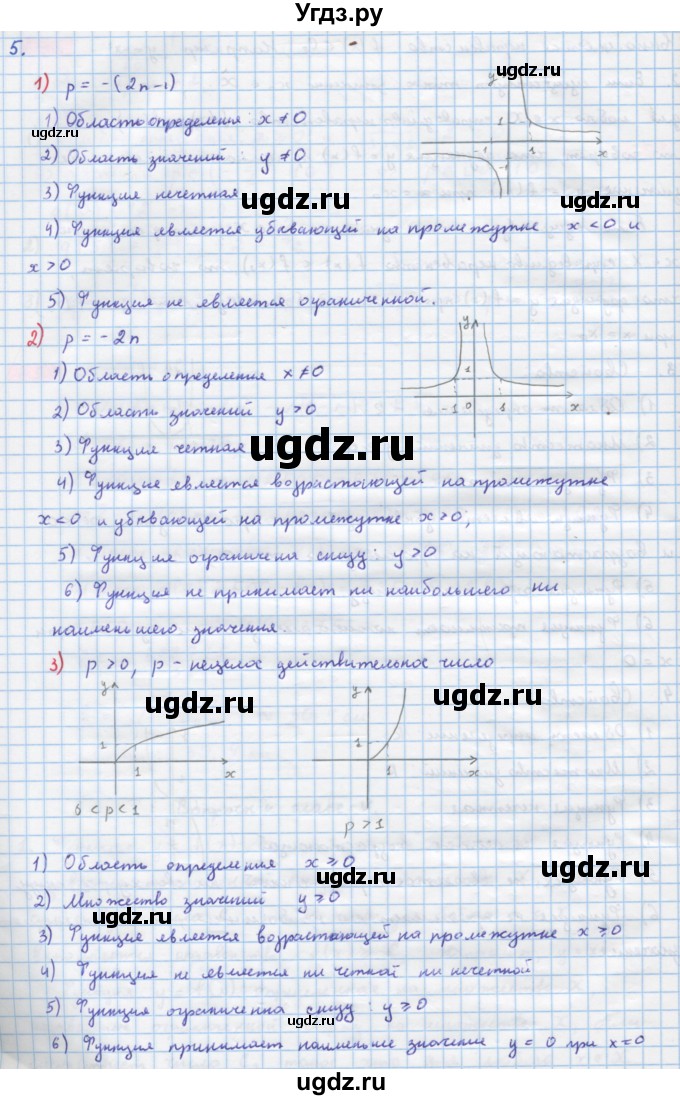 Угдз.ру
5.
1) p = -(2n-1)
ugdz.ru
y
1
-1
1
x
-1
1) Область определения: x ≠ 0
ugdz.ru
2) Область значений: y ≠ 0
3) Функция нечетная
ugdz.ru
ugdz.ru
4) Функция является убывающей на промежутке x < 0 и
x > 0
5) Функция не является ограниченной.
2) p = -2n
y
1
-1
0
1
x
ugdz.ru
1) Область определения x ≠ 0
2) Область значений y > 0
3) Функция четная
ugdz.ru
4) Функция является возрастающей на промежутке
x < 0 и убывающей на промежутке x > 0;
5) Функция ограничена снизу: y > 0
6) Функция не принимает ни наибольшего ни
наименьшего значения.
ugdz.ru
3) p > 0, p - нецелое действительное число
ugdz.ru
ugdz.ru
y
1
1
x
y
1
1
x
ugdz.ru
p < 1
p > 1
1) Область определения x ⩾ 0
ugdz.ru
ugdz.ru
2) Множество значений y ⩾ 0
ugdz.ru
3) Функция является возрастающей на промежутке x ⩾ 0
4) Функция не является ни четной ни нечетной
5) Функция ограниченна снизу: y ⩾ 0
ugdz.ru
6) Функция принимает наименьше значение y = 0 при x = 0
ugdz.ru